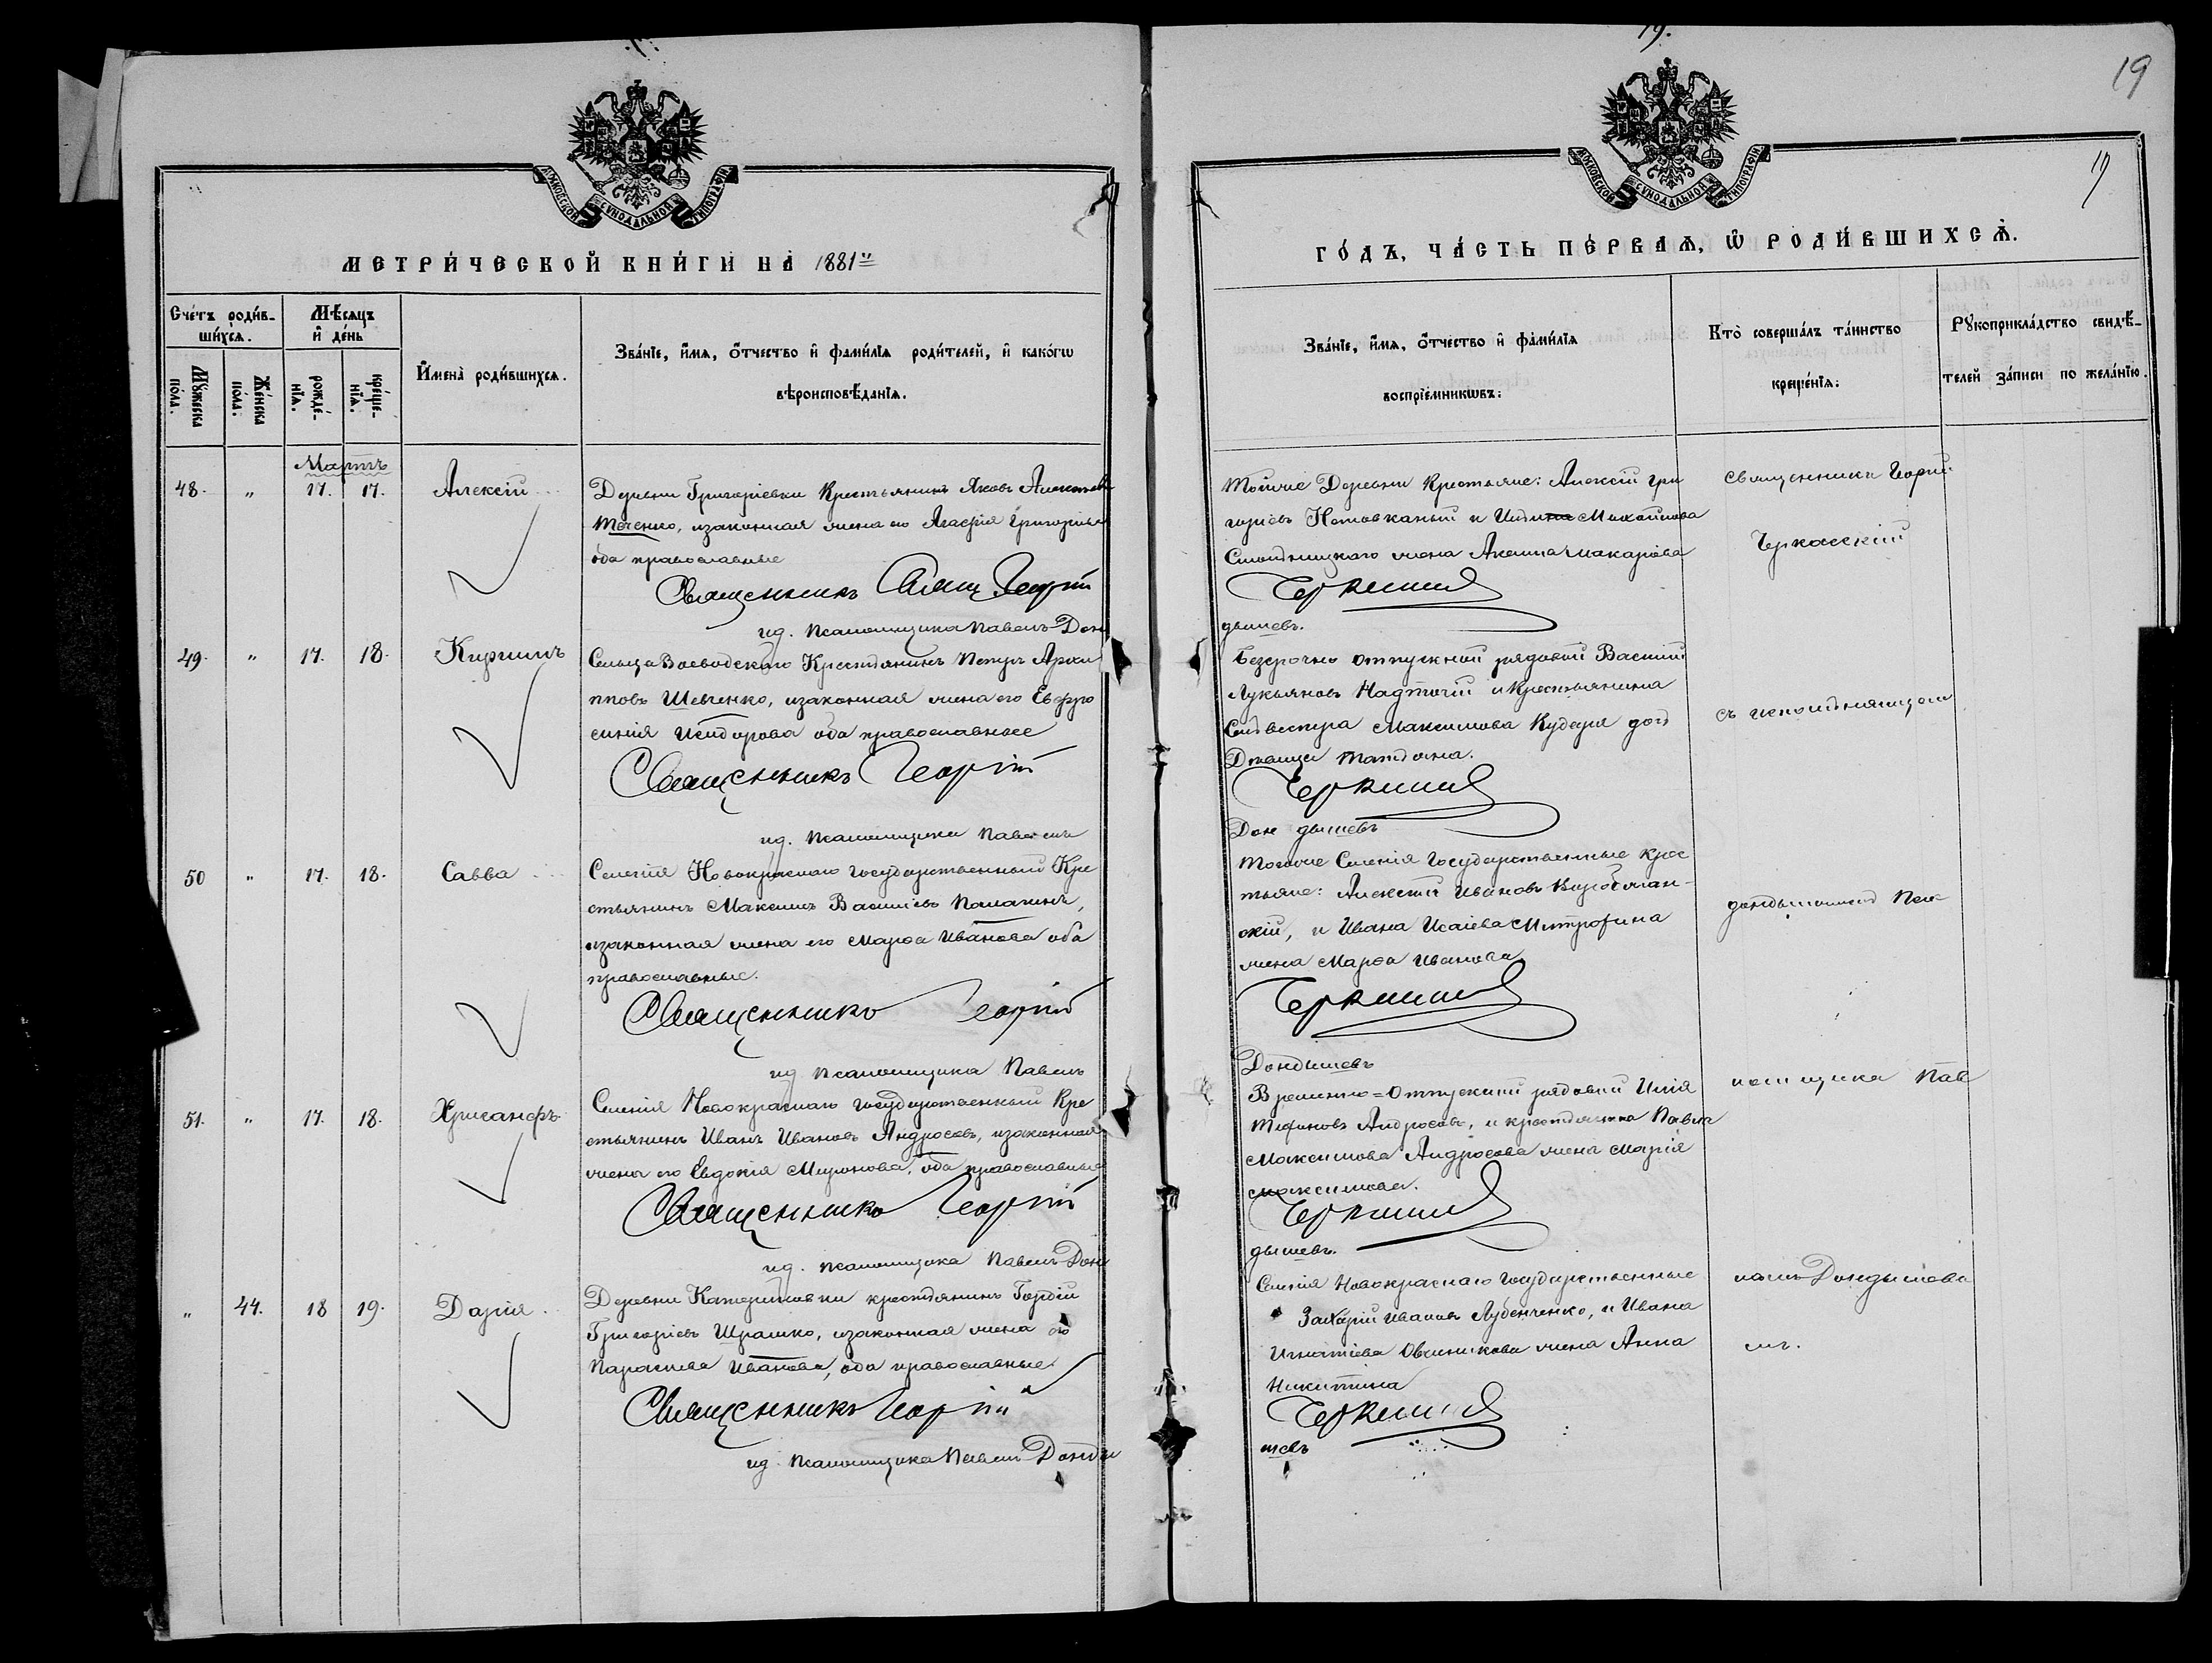 19.
19
19
МОСКОВСКОЙ СУНОДАЛЬНОЙ ТИПОГРАФІИ
МОСКОВСКОЙ СУНОДАЛЬНОЙ ТИПОГРАФІИ
МЕТРИ́ЧЕСКОЙ КНИ́ГИ НА̀ 1881й
ГО́ДЪ, ЧА́СТЬ ПЕ́РВАѦ, Ѡ҆ РОДИ́ВШИХСѦ.
Сче́тъ роди́в-
ши́хсѧ.
Мѣ́сѧцъ
и҆ де́нь
Мꙋ́жеска
по́ла.
Же́нска
по́ла.
рожде́-
нїѧ.
креще-
нїѧ.
И҆мена̀ роди́вшихсѧ.
Зва́нїе, и҆́мѧ, ѻ҆́тчество и҆ фами́лїѧ роди́телей, и҆ како́гѡ
вѣроисповѣ́данїѧ.
Зва́нїе, и҆́мѧ, ѻ҆́тчество и҆ фами́лїѧ
воспрїе́мникѡвъ:
Кто̀ соверша́лъ та́инство
креще́нїѧ:
Рꙋкоприкла́дство свидѣ́-
телей за́писи по жела́нїю.
Мартъ
48. " 17. 17. Алексій
Деревни Григоріевки Крестьянинъ Яковъ
Теченко, и законная жена его Агафія Григорьева
оба православные
Священникъ Георгій
ид. псаломщика Павелъ Дон
Тойже Деревни Крестьяне: Алексій Гри
горіевъ и
жена Акилина Макарова
Черкасскій
дышевъ.
Священникъ Георгій
Черкасскій
49. " 17. 18. Кириллъ
Сельца Воеводскаго Крестьянинъ Петръ Архи
пповъ Шевченко, и законная жена его Евфро
синія Исидорова оба православные
Священникъ Георгій
ид. псаломщика Павелъ
Безсрочно отпускной рядовой Василій
Лукьяновъ Надточій и Крестьянина
Сильвестра Максимова дочь
девица Татьяна.
Черкасскій
Дон дышевъ
съ
50 " 17. 18. Савва
Селенія Новокраснаго Государственный Кре
стьянинъ Максимъ Васильевъ Палагинъ,
и законная жена его Марѳа Иванова оба
православные.
Священникъ Георгій
ид. псаломщика Павелъ
Тогоже Селенія Государственные крес
тьяне: Алексѣй Ивановъ
скій, и Ивана Исаіева Митрофина
жена Марѳа Иванова
Черкасскій
Дондышевъ
51. " 17. 18. Хрисанфъ
Селенія Новокраснаго Государственный Кре
стьянинъ Иванъ Ивановъ Андросовъ, и законная
жена его Евдокія Миронова, оба православные
Священникъ Георгій
ид. псаломщика Павелъ Дон
Временно=Отпускной рядовой Илія
Андросовъ, и крестьянина Павла
Максимова Андросова жена Марія
Максимова.
Черкасскій
дышевъ.
Пав
" 44. 18 19. Дарія
Деревни Катериновки крестьянинъ Гордій
Григоріевъ Шрамко, и законная жена его
Параскева Иванова, оба православные.
Священникъ Георгій
ид. псаломщика Павелъ Донды
Селенія Новокраснаго Государственные
Захарій Ивановъ Лубенченко, и Ивана
Игнатіева Овчиникова жена Анна
Никитина
Черкасскій
шевъ
ломъ Дондышевы
мъ.